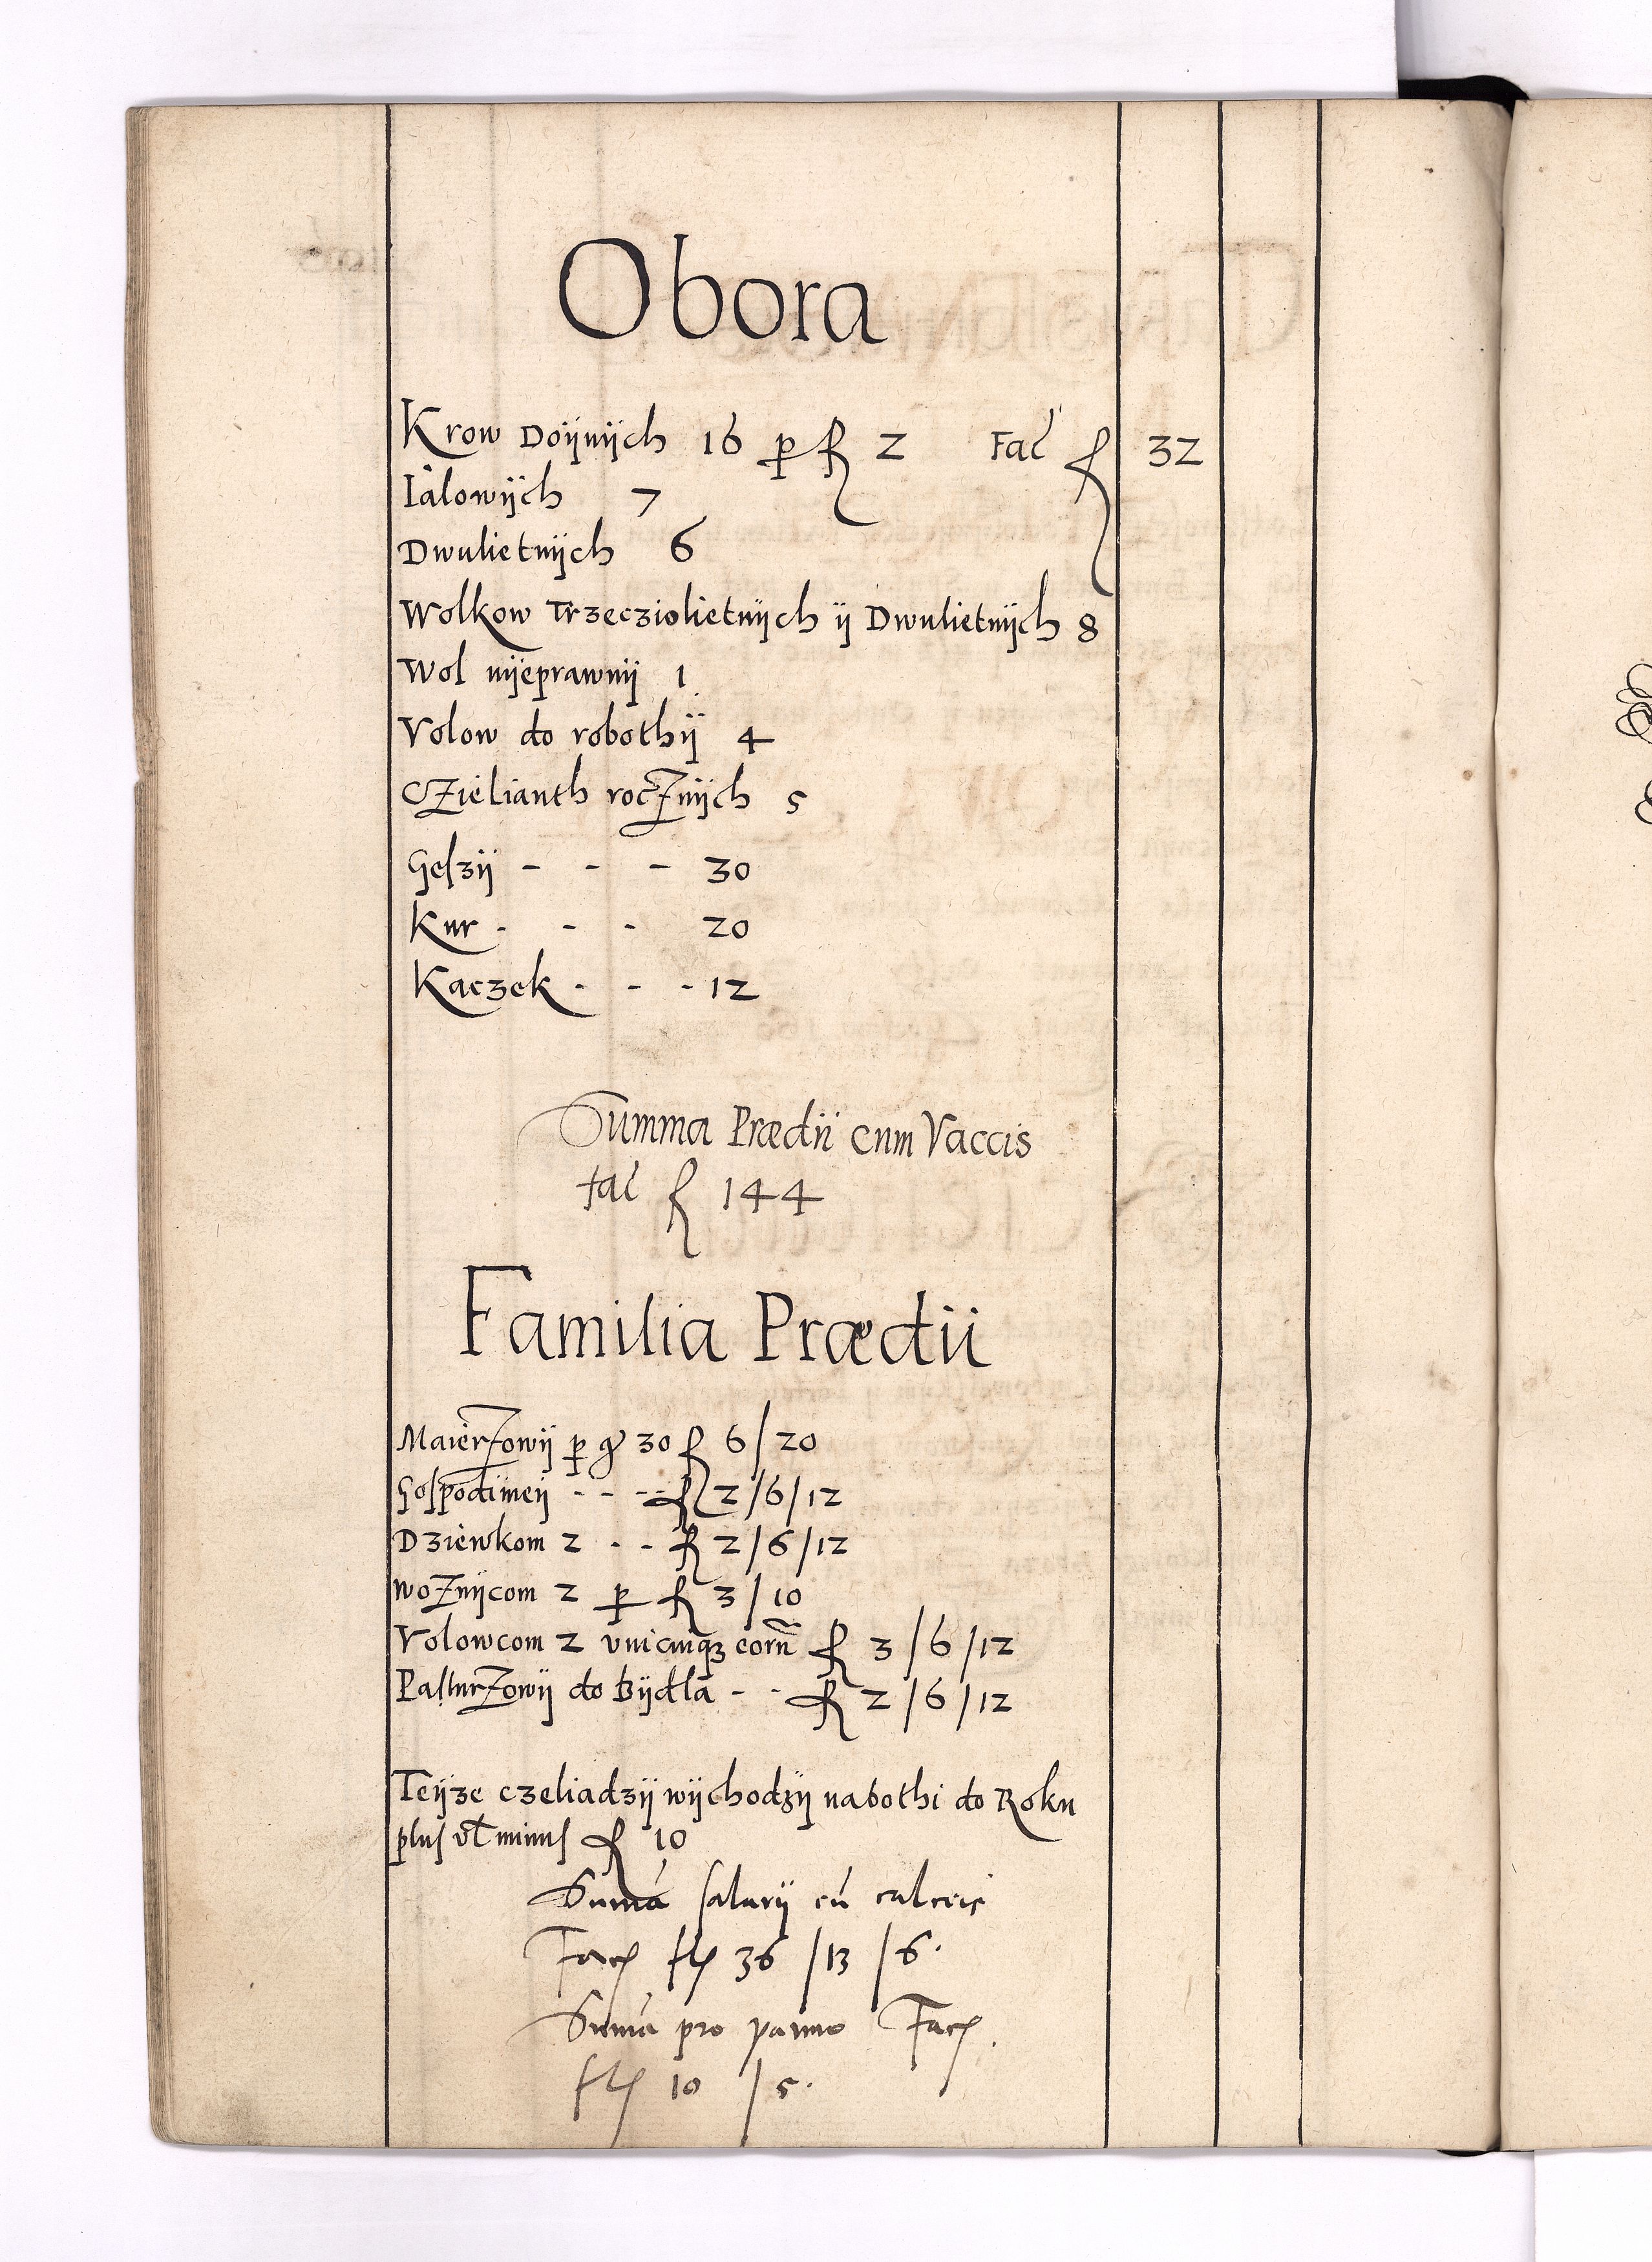 Obora
Krow Doÿnÿch 16 p fl 2 Fac̄ fl 32
Iàlowÿch 7
Dwulietnÿch 6
Wolkow Trzecziolietnÿch ÿ Dwulietnÿch 8
Wol nÿeprawnÿ 1
Volow do robothÿ 4
Czielianth rocznÿch 5
Gęszÿ - - - 30
Kur - - - 20
Kaczek - - - 12
Summa Prædii cum Vaccis
fac̄ fl 144
Familia Prædii
Maierzowÿ p gr 30 fl 6/20
Gospodinieÿ - - - fl 2/6/12
Dziewkom 2 - - fl 2/6/12
Woznÿcom 2 p fl 3/10
Volowcom 2 unicuiqz eorū fl 3/6/12
Pasturzowÿ do Bÿdla - - fl 2/6/12
Teÿze czeliadzÿ wÿchodzÿ nabothi do Roku
plus vł minus fl 10
Sumā salarÿ cū calceis
Fac fl 36/13/6.
Sumā pro panno Fac.
fl 10/5.